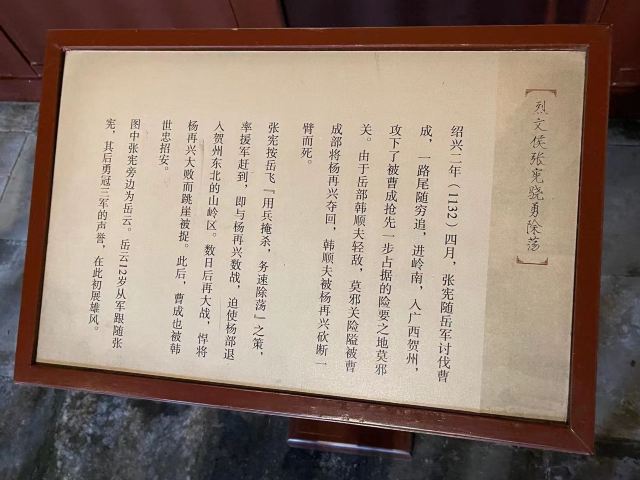 【烈文侯张宪骁勇除荡】
绍兴二年（1132）四月，张宪随岳军讨伐曹
成，一路尾随穷追，进岭南，入广西贺州，
攻下了被曹成抢先一步占据的险要之地莫邪
关。由于岳部韩顺夫轻敌，莫邪关险隘被曹
成部将杨再兴夺回，韩顺夫被杨再兴砍断一
臂而死。
张宪按岳飞『用兵掩杀，务速除荡』之策，
率援军赶到，即与杨再兴数战，迫使杨部退
入贺州东北的山岭区。数日后再大战，悍将
杨再兴大败而跳崖被捉。此后，曹成也被韩
世忠招安。
图中张宪旁边为岳云。岳云12岁从军跟随张
宪，其后勇冠三军的声誉，在此初展雄风。